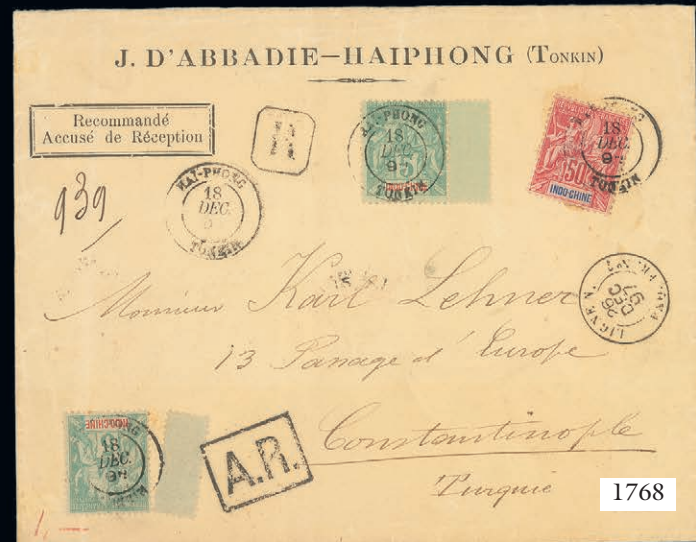 J. D'ABBADIE—HAIPHONG (TONKIN)
Recommandé
Accusé de Réception
R
HAI-PHONG
18
DEC.
97
TONKIN
5
INDO-CHINE
HAI-PHONG
18
DEC.
97
TONKIN
50
INDO-CHINE
939
HAI-PHONG
18
DEC.
TONKIN
LIGNE N
26
DEC
97
Monsieur Karl Lehner
13 Panage d'Europe
Constantinople
Turquie
INDO-CHINE
18
DEC.
97
A.R.
1768